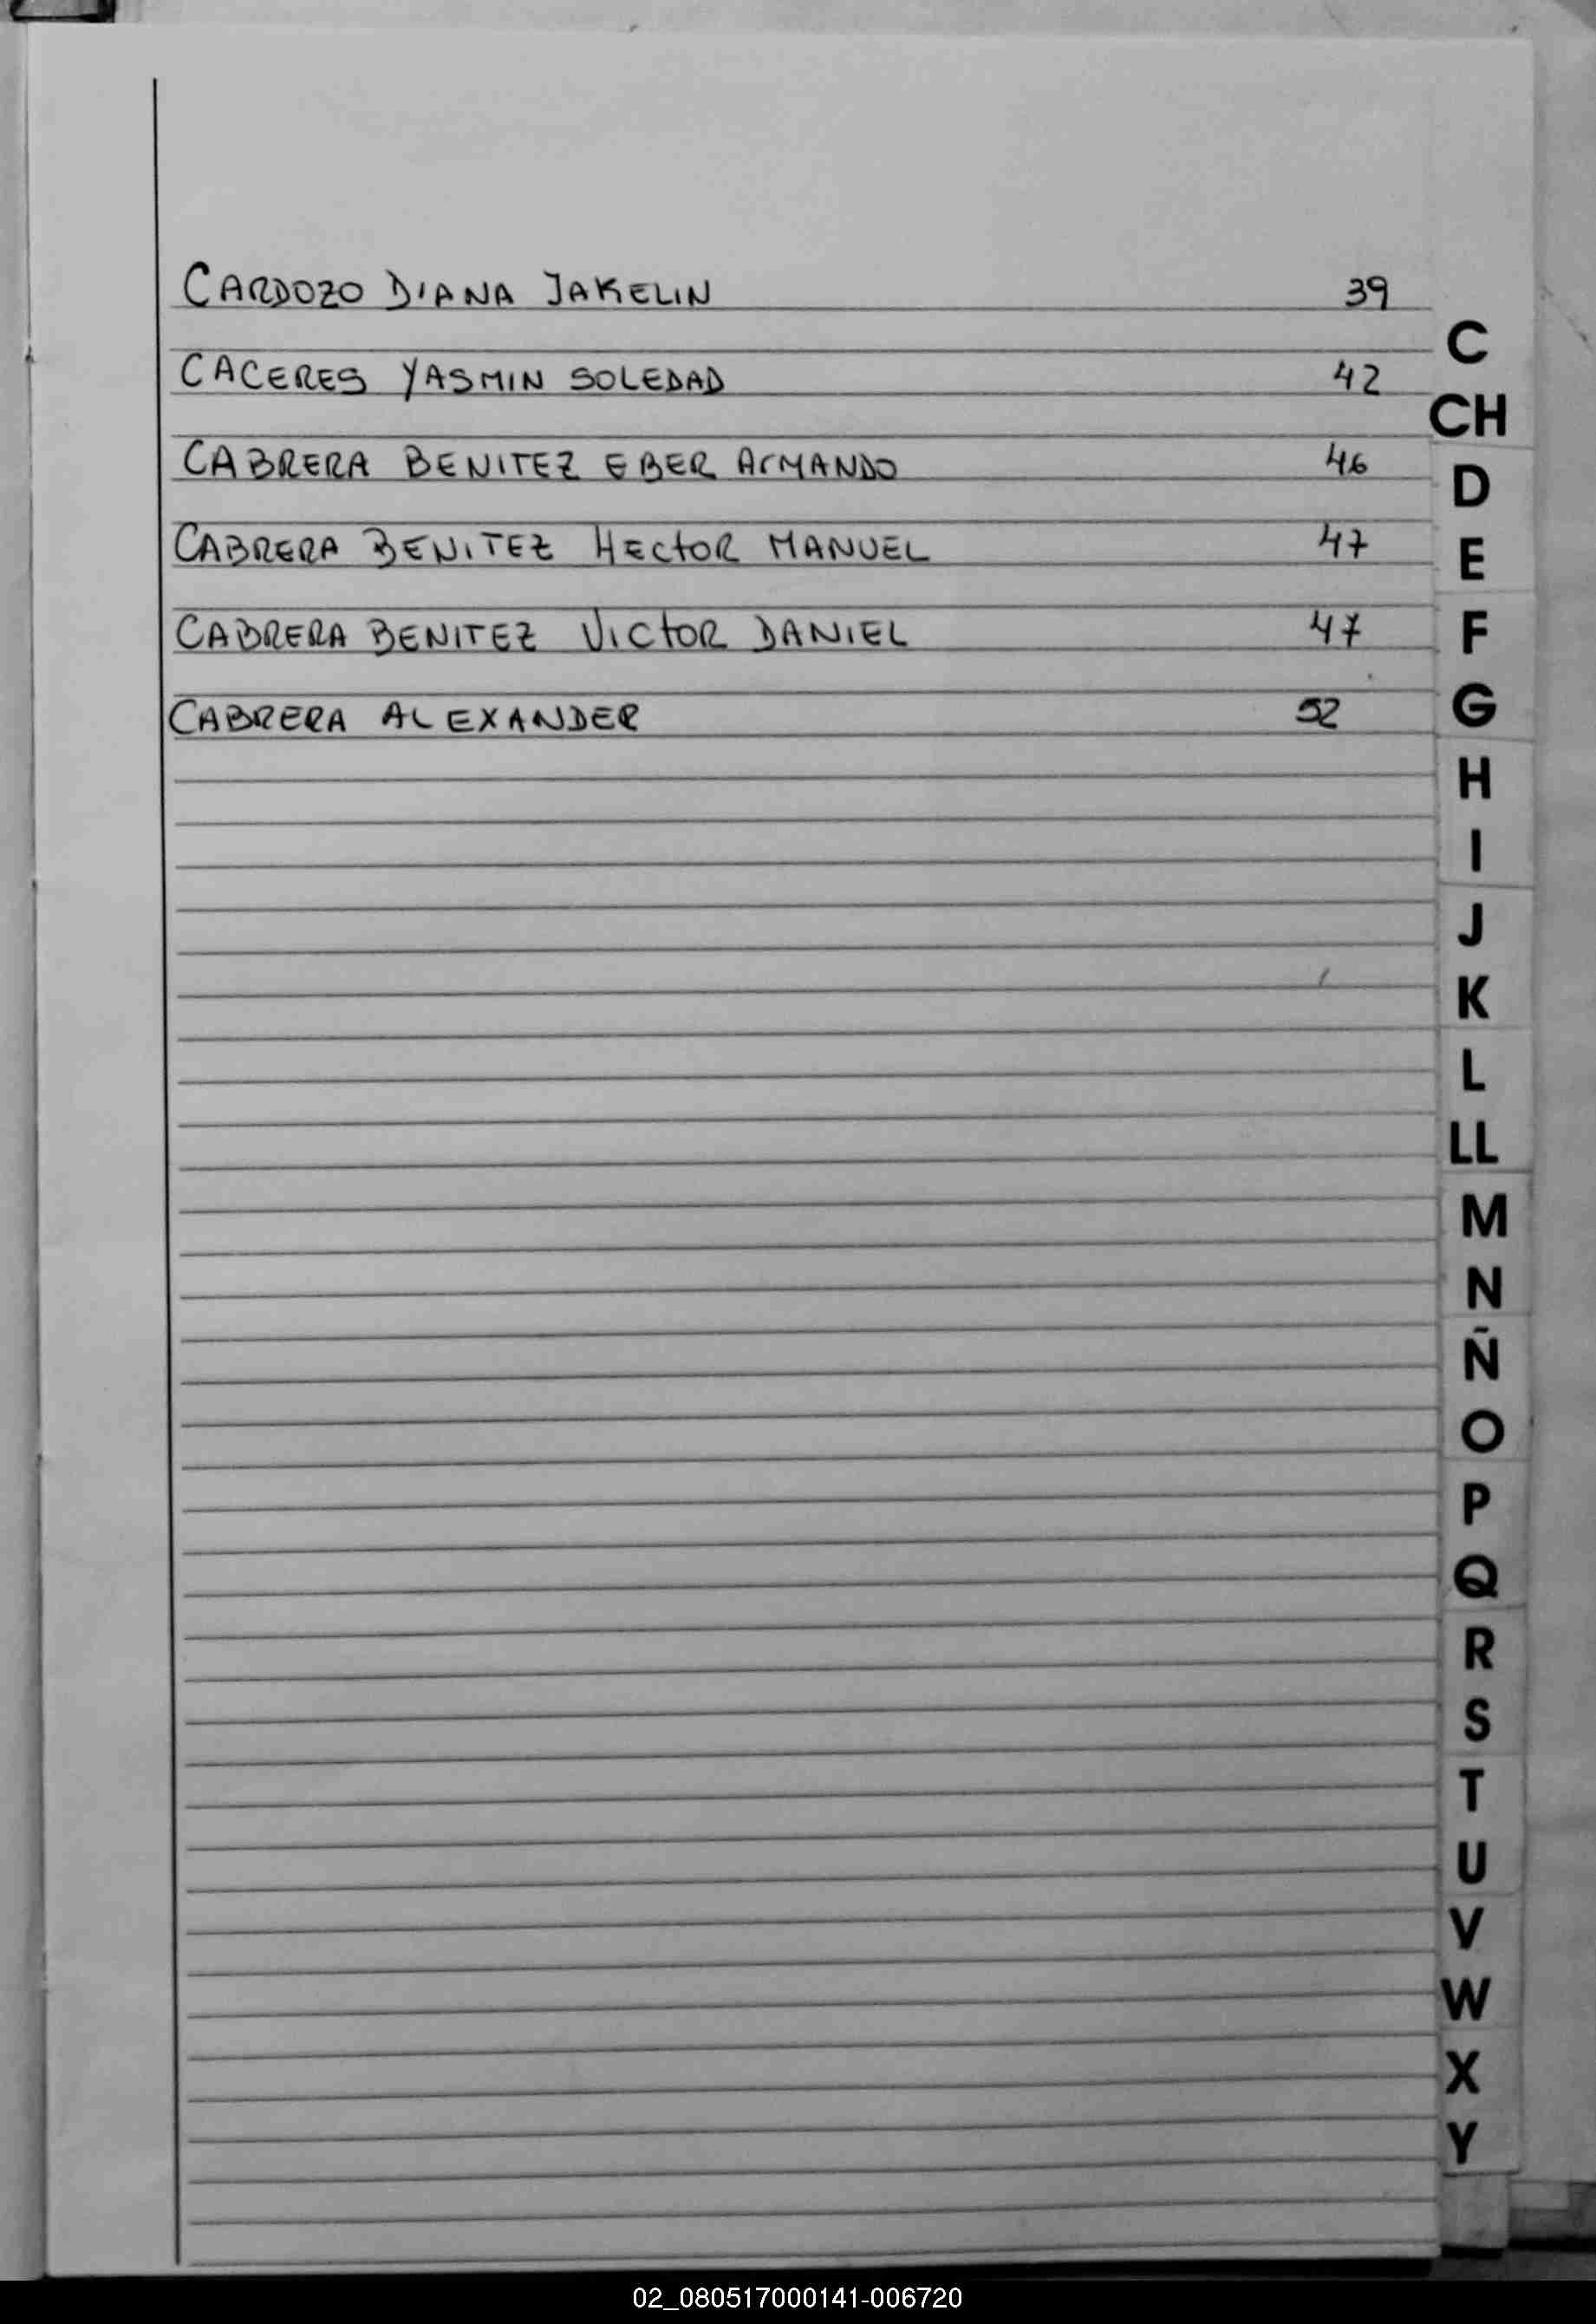 CARDOZO DIANA JAKELIN 39
CACERES YASMIN SOLEDAD 42
CABRERA BENITEZ EBER ArMANDO 46
CABRERA BENITEZ HECtOR MANUEL 47
CABRERA BENITEZ VICtOR DANIEL 47
CABRERA ALEXANDER 52
C
CH
D
E
F
G
H
I
J
K
L
LL
M
N
Ñ
O
P
Q
R
S
T
U
V
W
X
Y
02_080517000141-006720